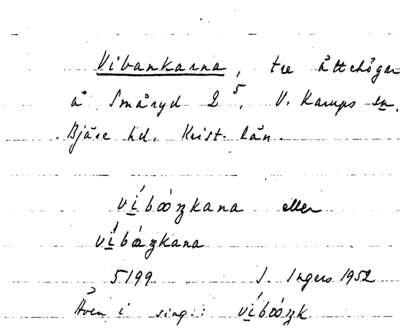 Vibankarna, tre ättehögar
å Småryd 2⁵, V. Karups sn.
Bjäre hd. Krist. län.
víbαŋkana eller
víbαŋkana
5199 I. Ingers 1952
Även i sing.: víbαŋk